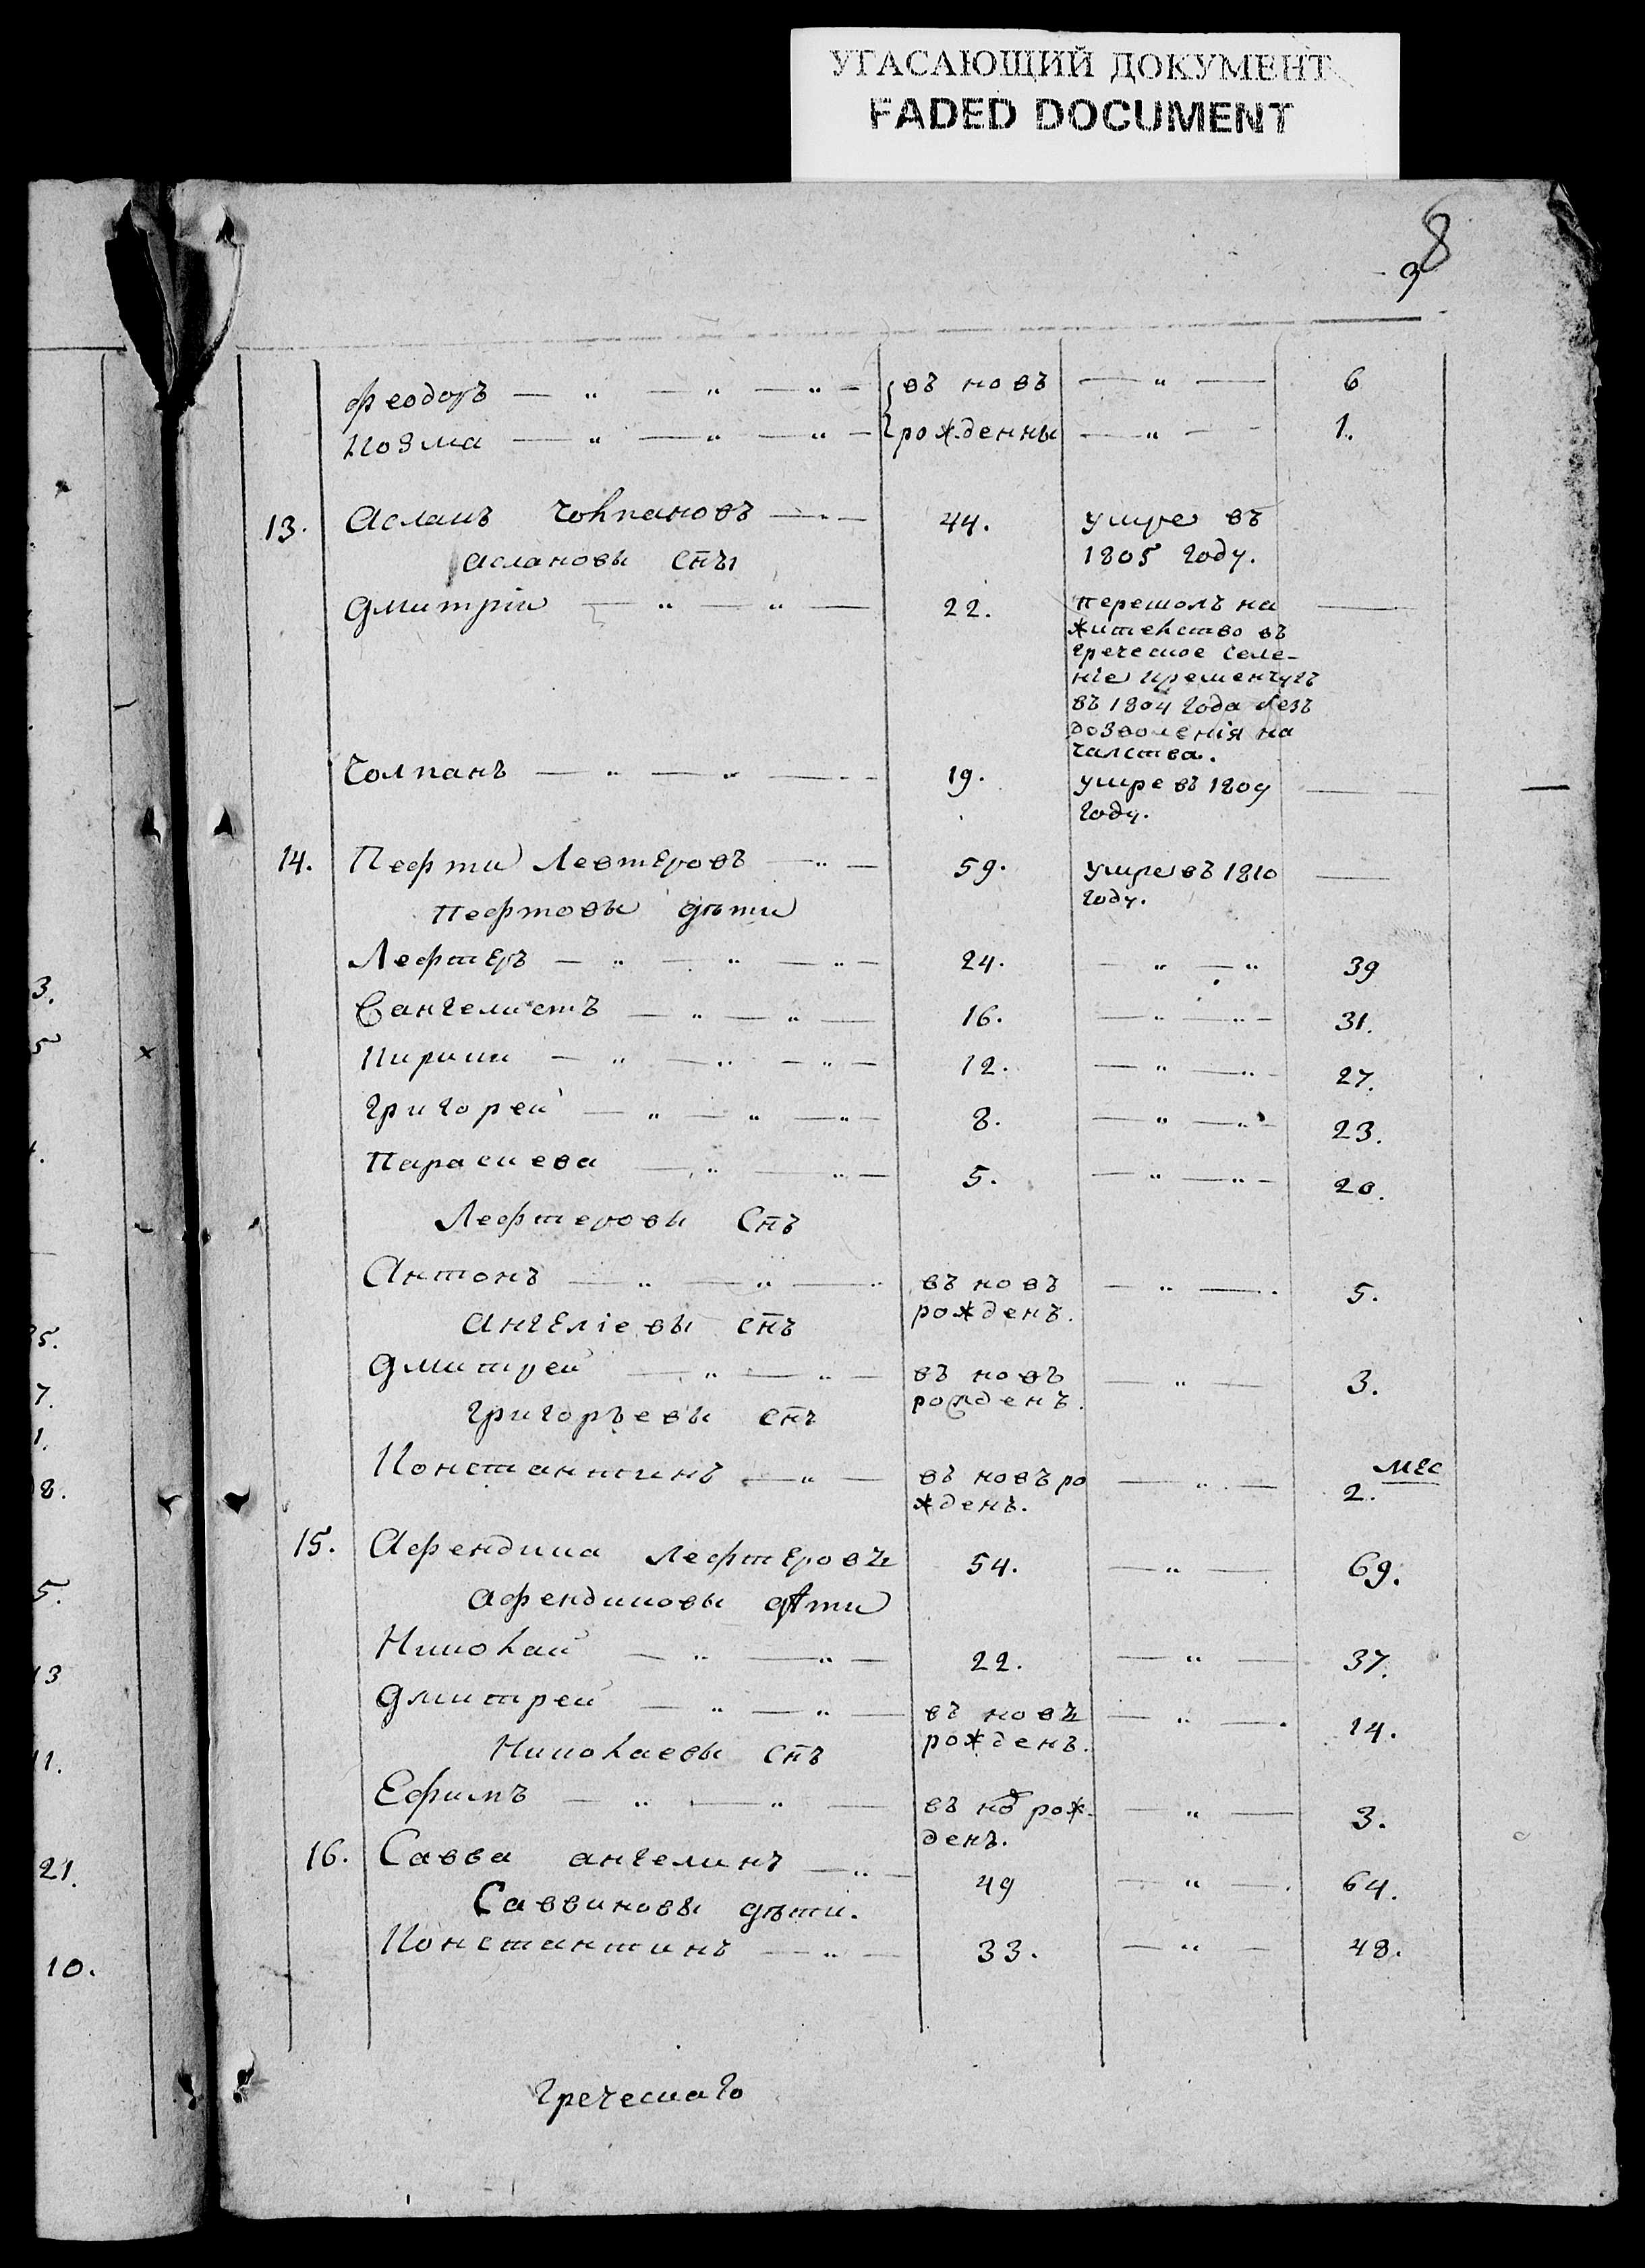 УГАСАЮЩИЙ ДОКУМЕНТ
FADED DOCUMENT
8
9
Феодоръ — „ — „ — „ — въ новь — „ — 6
Козма — „ — „ — „ — рожденны — „ — 1.
13. Асланъ Чолпановъ — „ — 44. умре въ
1805 году.
аслановы снъı
Дмитріи — „ — „ — 22. перешолъ на —
жительство въ
греческое селе-
ніе кременчугъ
въ 1804 года безъ
дозволенія на
чалства.
Чолпанъ — „ — „ — 19. умре въ 1809 —
году.
14. Пефти Левтеровъ — „ — 59. умре въ 1810 —
году.
пефтовы дѣти
Лефтеръ — „ — „ — „ — 24. — „ — „ 39
Евангелистъ — „ — „ — 16. — „ — „ — 31.
Кирики — „ — „ — „ — 12. — „ — „ — 27.
Григорей — „ — „ — „ — 8. — „ — „ — 23.
Параскева — „ — „ — 5. — „ — „ — 20.
Лефтеровы снъ
Антонъ — „ — „ — „ въ новъ — „ — 5.
рожденъ.
Ангеліевы снъ
Дмитрей — „ — „ — въ новъ — „ — 3.
рожденъ.
Григорьевы снъ
Константинъ — „ — въ новъ ро — „ — мес
2.
жденъ.
15. Афендика Лефтеровъ 54. — „ — 69.
афендиковы дѣти
Николай — „ — „ — 22. — „ — 37.
Дмитрей — „ — „ — въ новъ — „ — 14.
рожденъ.
Николаевы снъ
Ефимъ — „ — „ — въ но рож- — „ — 3.
денъ.
16. Савва ангелинъ — „ — 49 — „ — 64.
Саввиновы дѣти.
Константинъ — „ — 33. — „ — 48.
Греческаго
3.
5
5.
7.
1.
8.
5.
13
11.
21.
10.